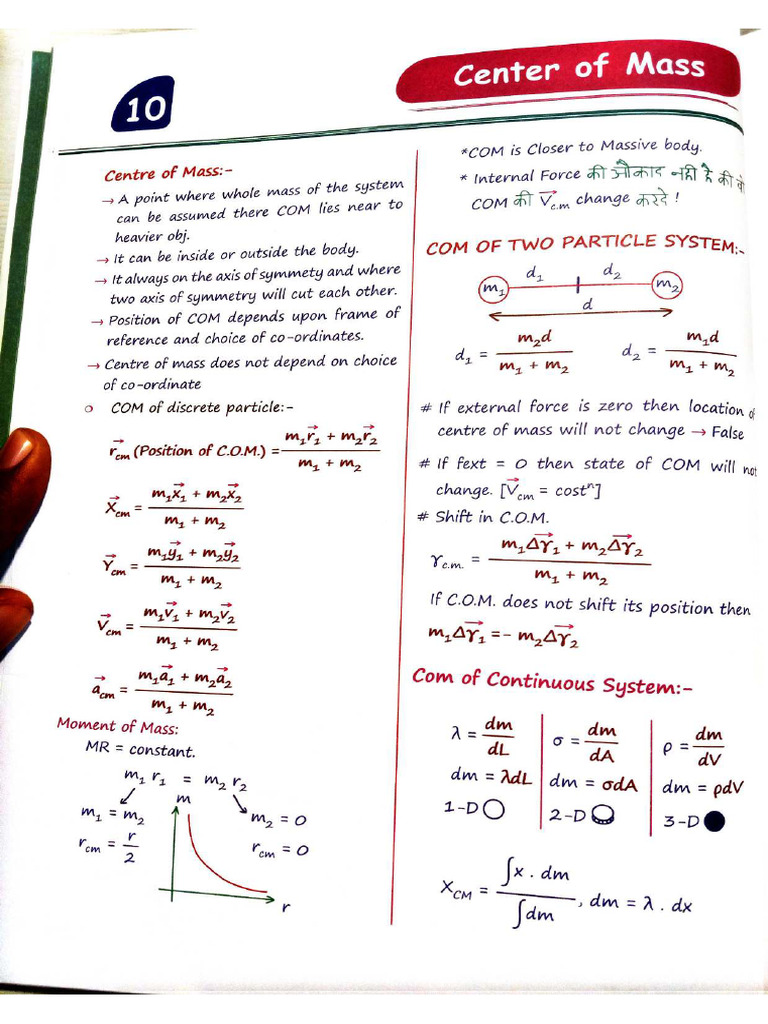 10
Center of Mass
Centre of Mass:-
→ A point where whole mass of the system
can be assumed there COM lies near to
heavier obj.
→ It can be inside or outside the body.
→ It always on the axis of symmety and where
two axis of symmetry will cut each other.
→ Position of COM depends upon frame of
reference and choice of co-ordinates.
→ Centre of mass does not depend on choice
of co-ordinate
○ COM of discrete particle:-
r⃗cm (Position of C.O.M.) = (m₁r⃗₁ + m₂r⃗₂) / (m₁ + m₂)
X⃗cm = (m₁x⃗₁ + m₂x⃗₂) / (m₁ + m₂)
Y⃗cm = (m₁y⃗₁ + m₂y⃗₂) / (m₁ + m₂)
V⃗cm = (m₁v⃗₁ + m₂v⃗₂) / (m₁ + m₂)
a⃗cm = (m₁a⃗₁ + m₂a⃗₂) / (m₁ + m₂)
Moment of Mass:
MR = constant.
m₁ r₁ = m₂ r₂
m₁ = m₂
rcm = r/2
m
r
m₂ = 0
rcm = 0
*COM is Closer to Massive body.
* Internal Force की औकाद नही है की वो
COM की V⃗c.m change करदे !
COM OF TWO PARTICLE SYSTEM:-
m₁ d₁ d₂ m₂
d
d₁ = m₂d / (m₁ + m₂) d₂ = m₁d / (m₁ + m₂)
# If external force is zero then location of
centre of mass will not change → False
# If fext = 0 then state of COM will not
change. [V⃗cm = costⁿ]
# Shift in C.O.M.
rc.m. = (m₁Δr⃗₁ + m₂Δr⃗₂) / (m₁ + m₂)
If C.O.M. does not shift its position then
m₁Δr⃗₁ = - m₂Δr⃗₂
Com of Continuous System:-
λ = dm/dL σ = dm/dA ρ = dm/dV
dm = λdL dm = σdA dm = ρdV
1-D 2-D 3-D
XCM = ∫x . dm / ∫dm , dm = λ . dx